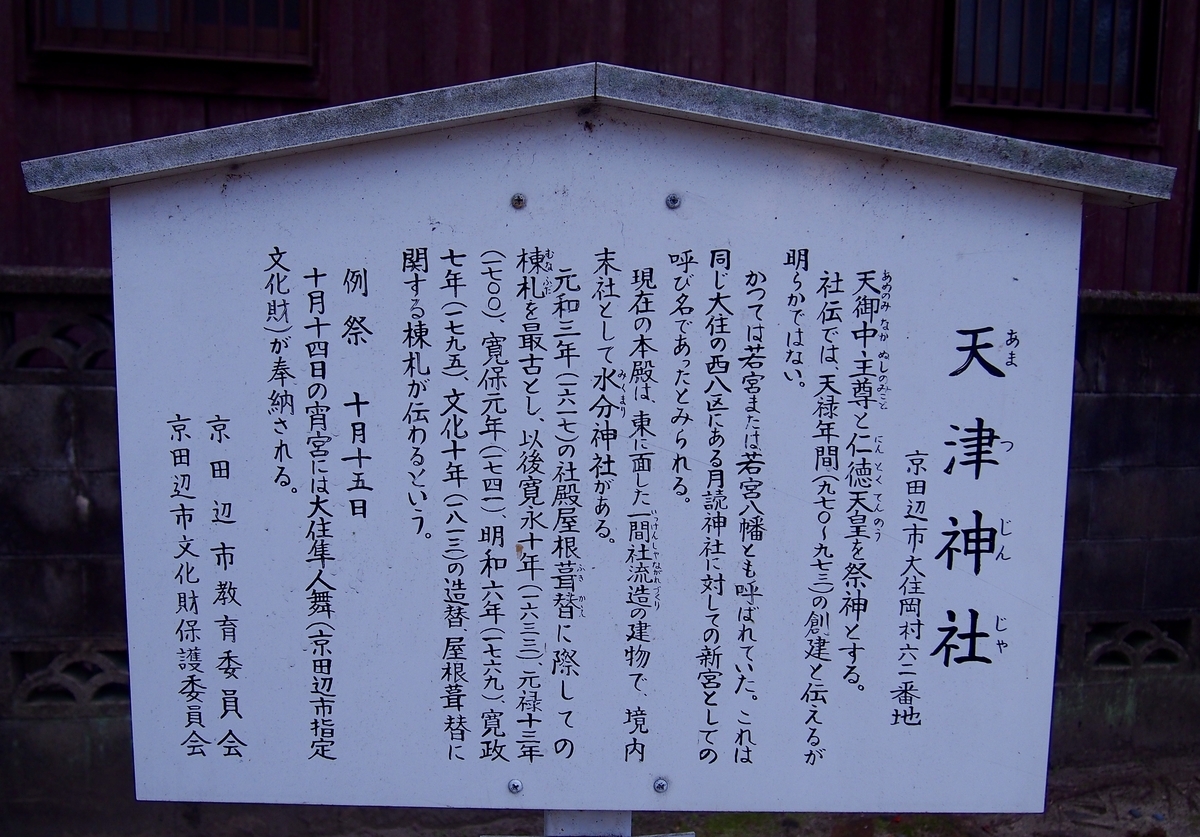 あま つ じん じゃ
天津神社
京田辺市大住岡村六一番地
あめのみ なか ぬしのみこと にんとくてんのう
天御中主尊と仁徳天皇を祭神とする。
社伝では、天禄年間(九七〇～九七三)の創建と伝えるが
明らかではない。
かつては若宮または若宮八幡とも呼ばれていた。これは
同じ大住の西八区にある月読神社に対しての新宮としての
呼び名であったとみられる。
いっけんしゃながれづくり
現在の本殿は、東に面した一間社流造の建物で、境内
みくまり
末社として水分神社がある。
ふき かえ
元和三年(一六一七)の社殿屋根葺替に際しての
むなふだ
棟札を最古とし、以後寛永十年(一六三三)、元禄十三年
(一七〇〇)、寛保元年(一七四一)、明和六年(一七六九)、寛政
七年(一七九五)、文化十年(一八一三)の造替・屋根葺替に
関する棟札が伝わるという。
例祭 十月十五日
十月十四日の宵宮には大住隼人舞(京田辺市指定
文化財)が奉納される。
京田辺市教育委員会
京田辺市文化財保護委員会